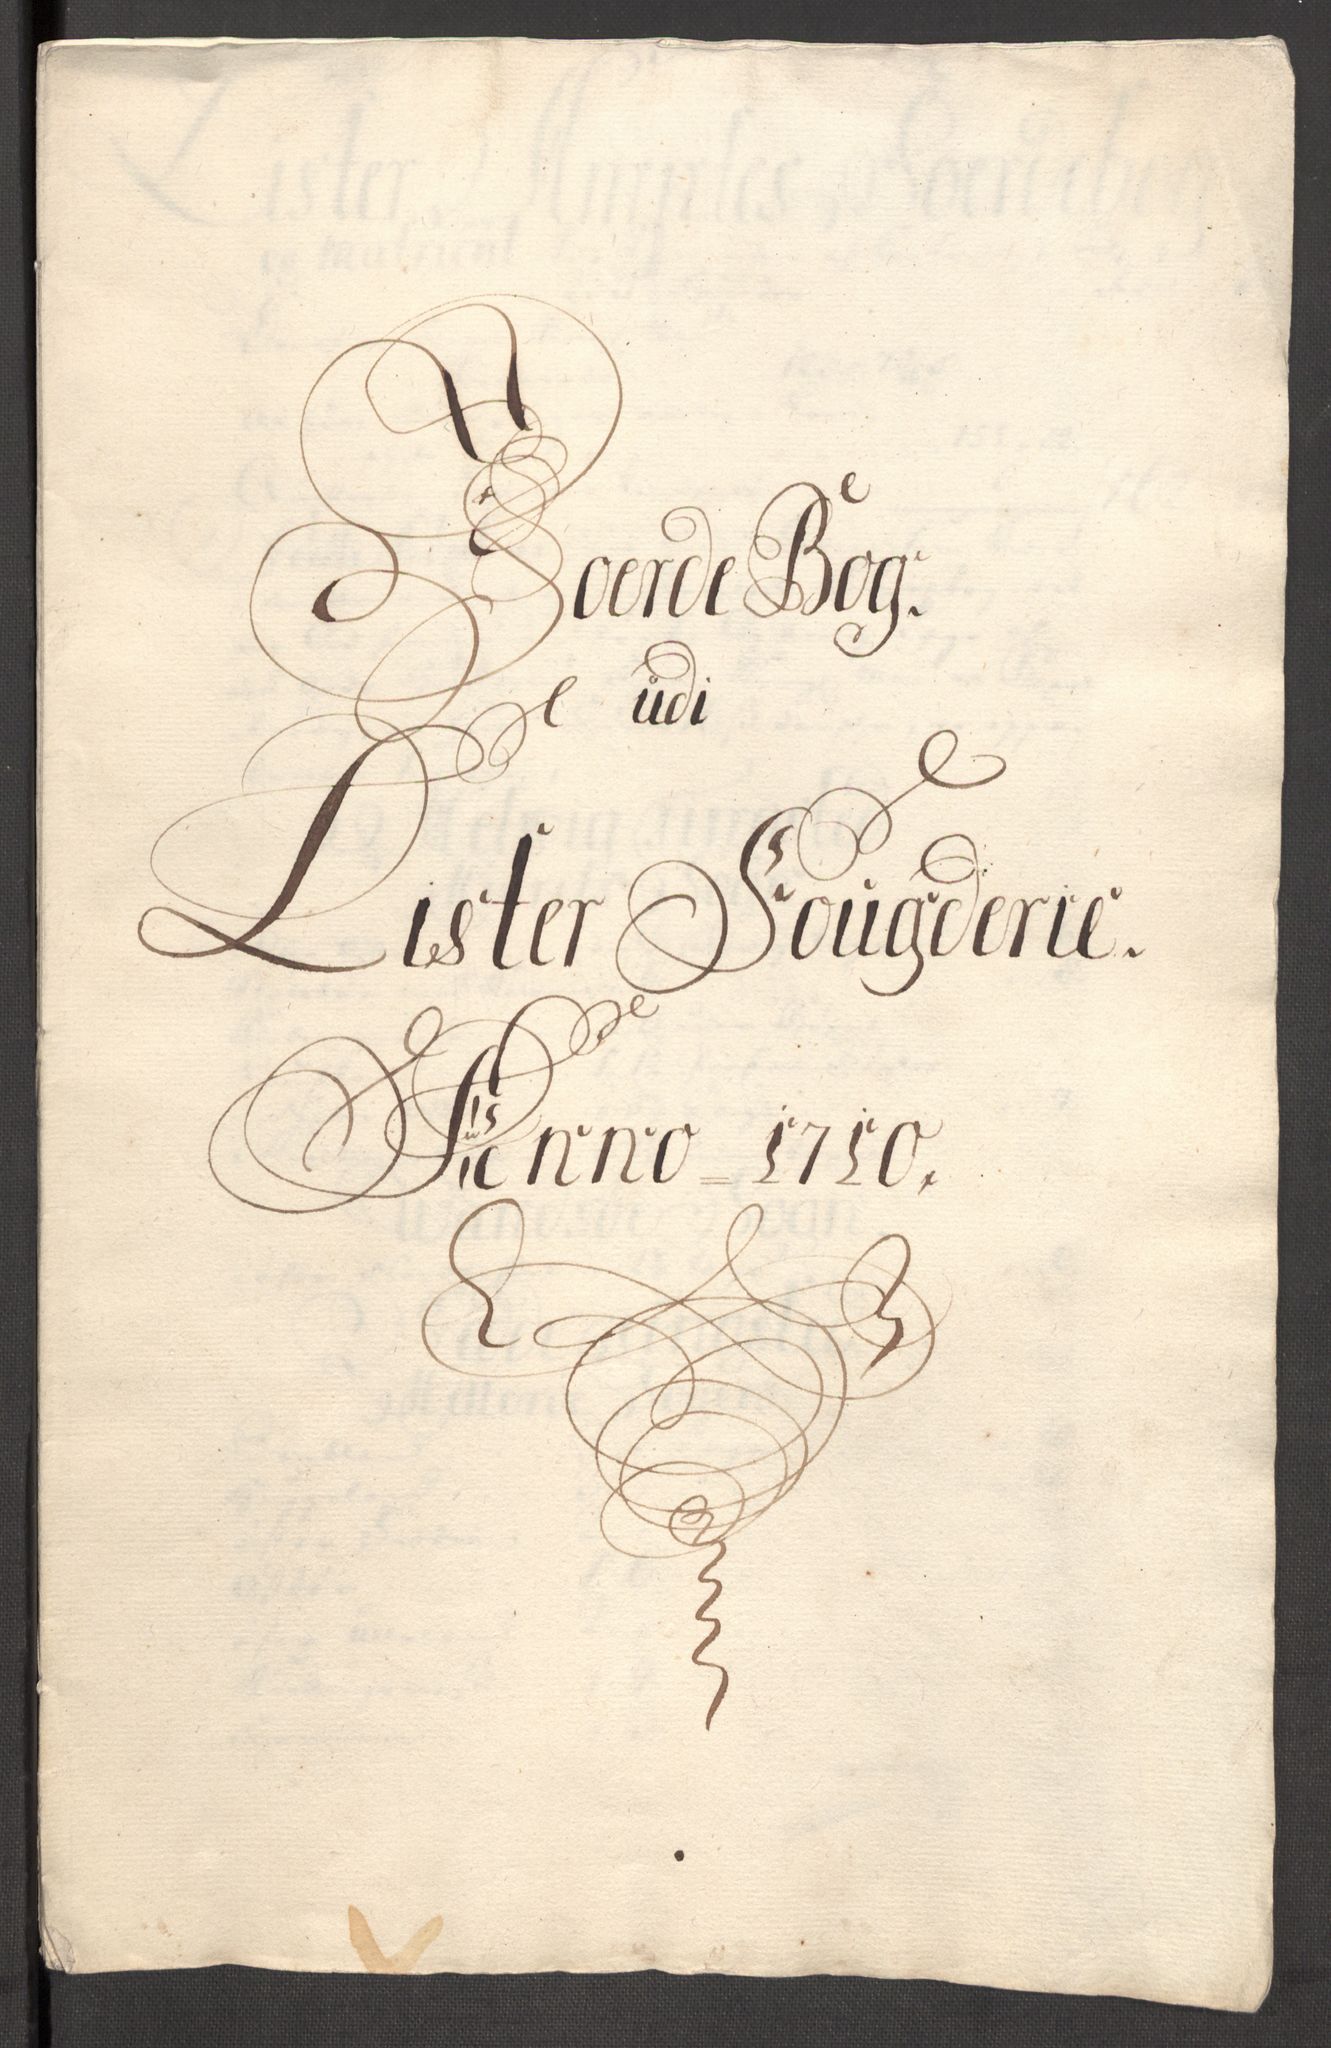 Joerde Bog.
udi
Lister Fougderie.
Anno = 1710.